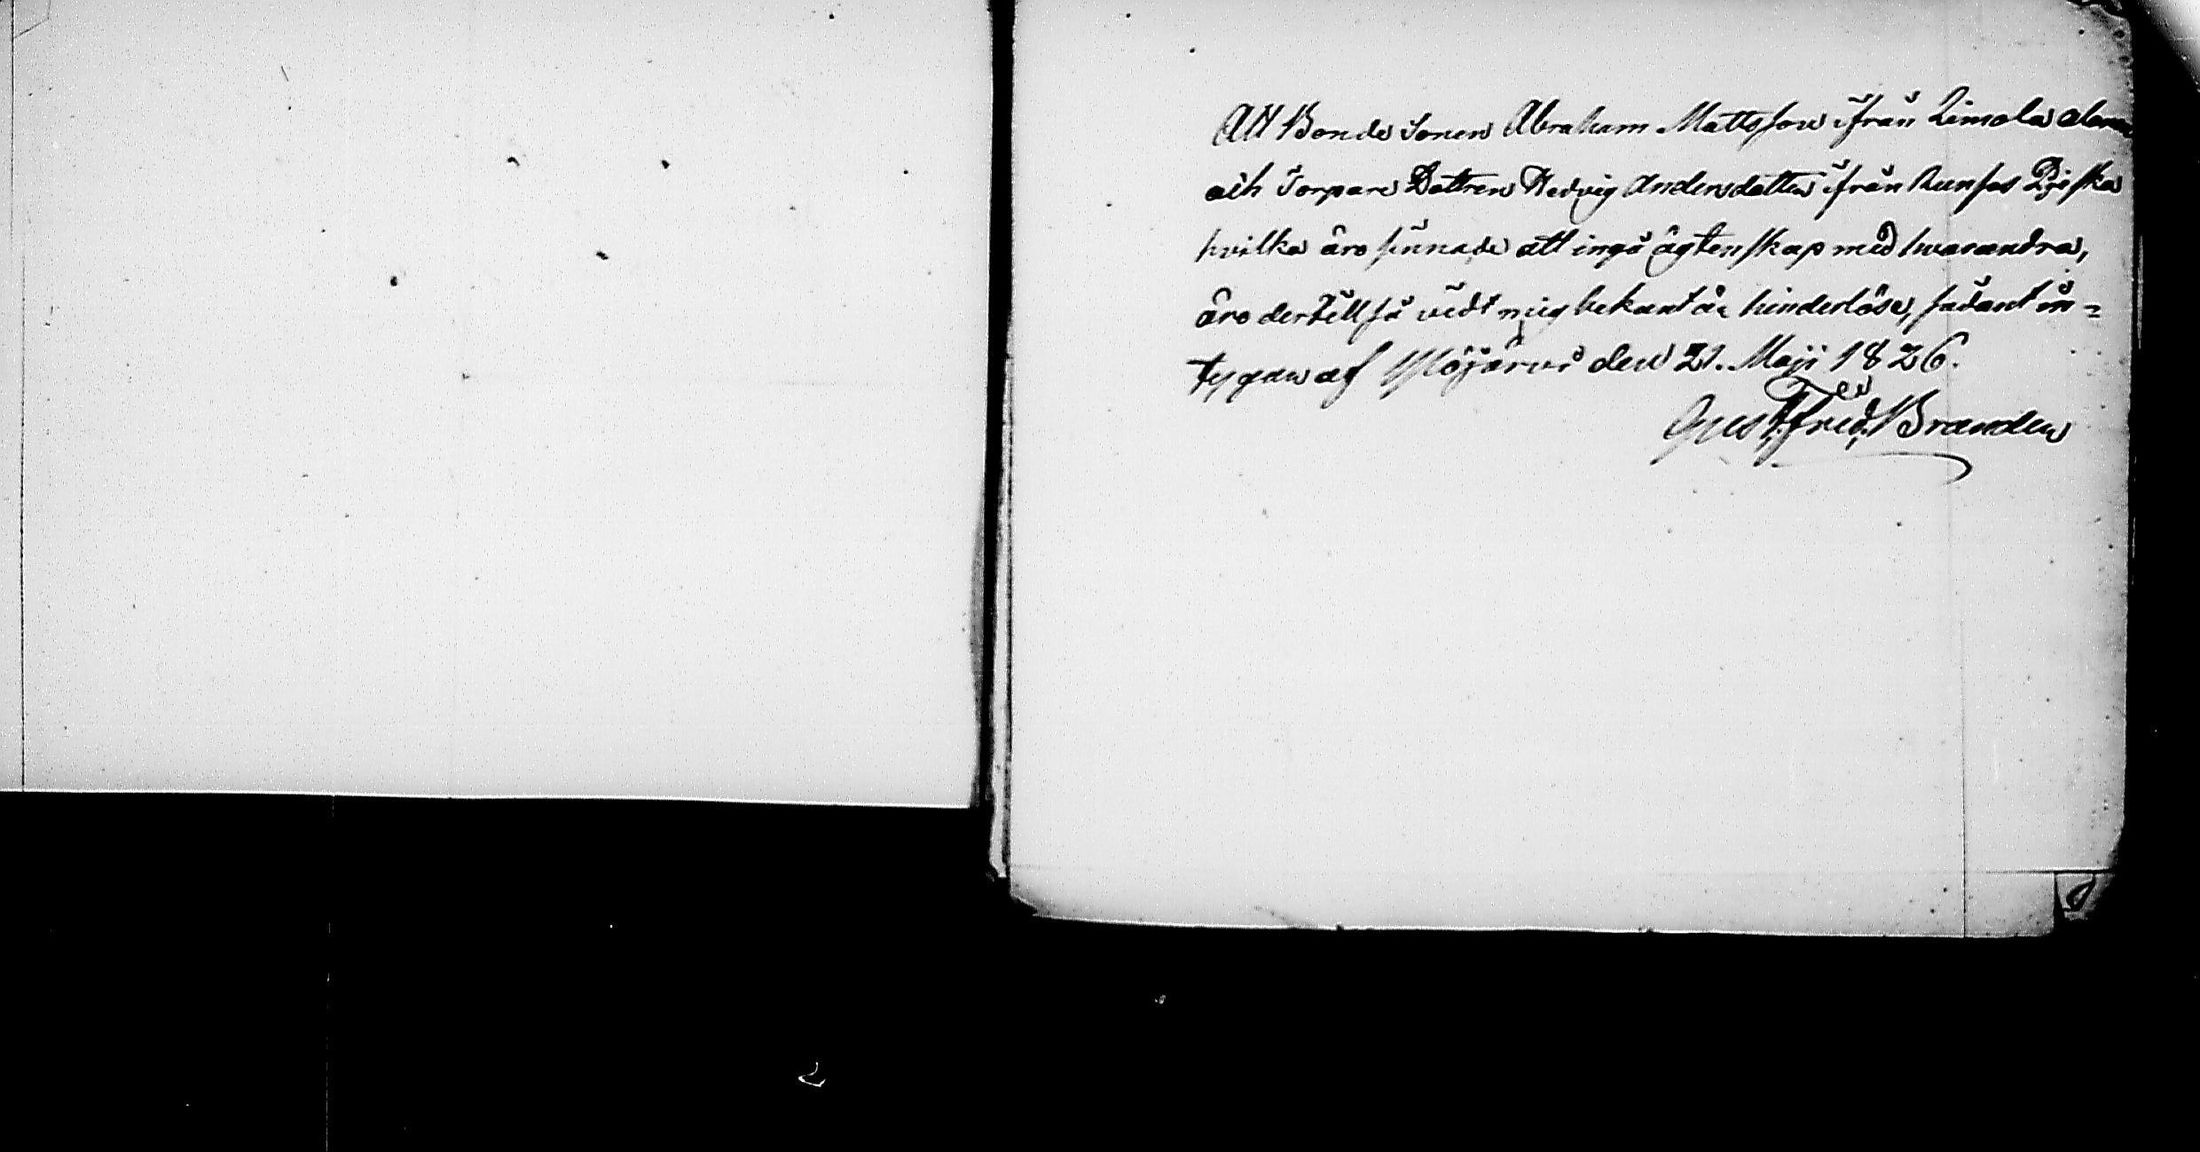 Att Bonde Sonen Abraham Mattsson ifrån Limola
och Torpare Dottren Hedvig Andersdotter ifrån
hvilka äro sinnade att ingå ägtenskap med hwarandra,
äro dertill så vidt mig bekant är hinderlöse, sådant in=
tygas af Ylöjärvi den 21. Maji 1826.
Gust. Fred. Brander